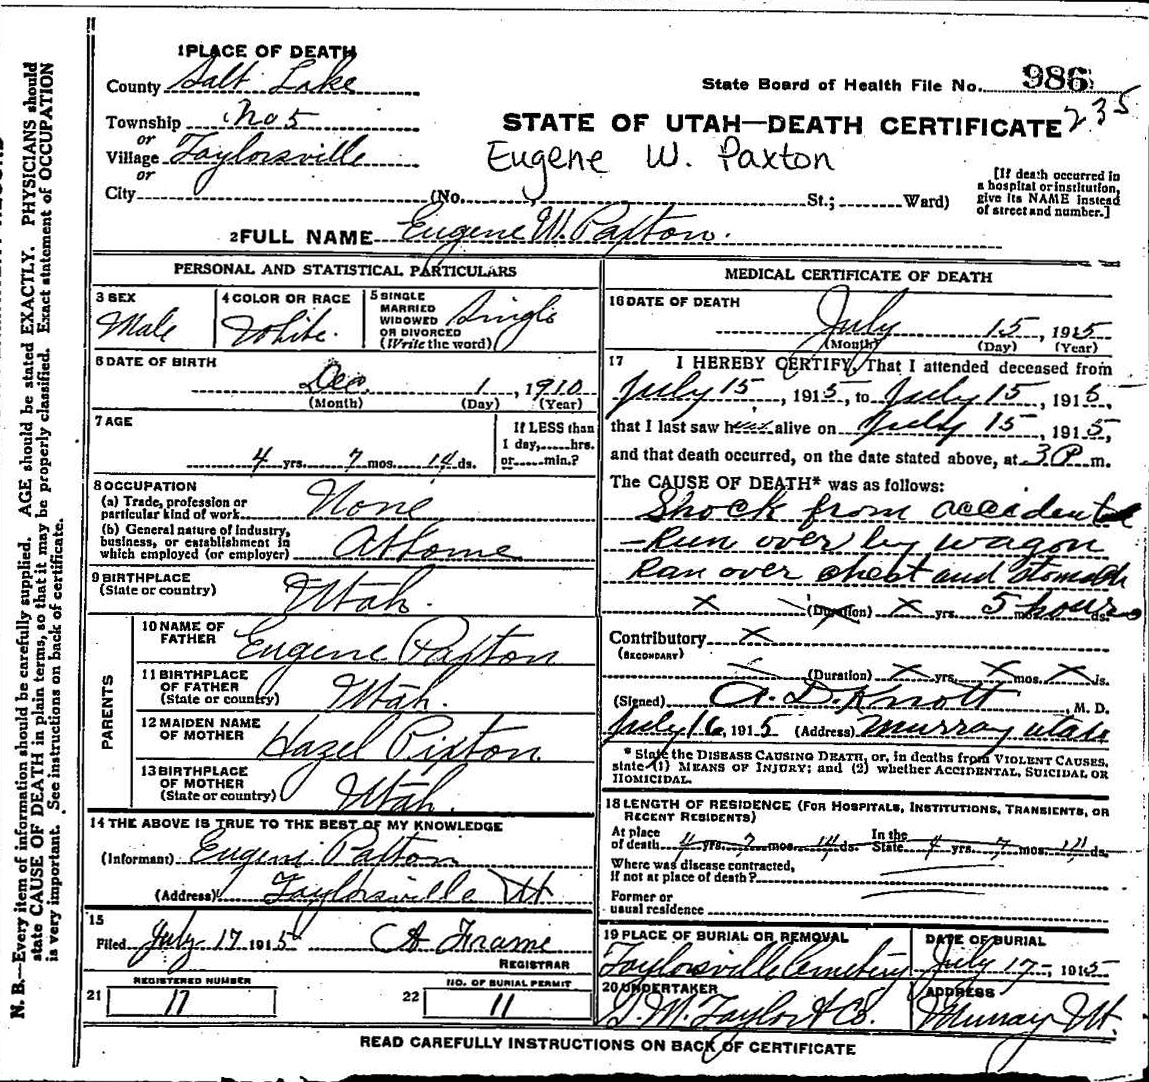 1 PLACE OF DEATH
County Salt Lake
State Board of Health File No. 986
235
Township No 5
or
Village Taylorsville
or
City (No. St.; Ward)
STATE OF UTAH—DEATH CERTIFICATE
Eugene W. Paxton
[If death occurred in
a hospital or institution,
give its NAME instead
of street and number.]
2 FULL NAME Eugene W. Paxton.
PERSONAL AND STATISTICAL PARTICULARS
3 SEX
Male
4 COLOR OR RACE
White.
5 SINGLE
MARRIED
WIDOWED
OR DIVORCED
(Write the word)
Single
6 DATE OF BIRTH
Dec. 1, 1910
(Month) (Day) (Year)
7 AGE
4 yrs. 7 mos. 14 ds.
If LESS than
1 day, hrs.
or min.?
8 OCCUPATION
(a) Trade, profession or
particular kind of work None
(b) General nature of industry,
business, or establishment in
which employed (or employer) At Home
9 BIRTHPLACE
(State or country) Utah.
PARENTS
10 NAME OF
FATHER Eugene Paxton
11 BIRTHPLACE
OF FATHER
(State or country) Utah.
12 MAIDEN NAME
OF MOTHER Hazel Pixton.
13 BIRTHPLACE
OF MOTHER
(State or country) Utah.
14 THE ABOVE IS TRUE TO THE BEST OF MY KNOWLEDGE
(Informant) Eugene Paxton
(Address) Taylorsville Ut
15
Filed July 17 1915 A Frame
REGISTRAR
REGISTERED NUMBER
21 17
NO. OF BURIAL PERMIT
22 11
MEDICAL CERTIFICATE OF DEATH
16 DATE OF DEATH
July 15, 1915
(Month) (Day) (Year)
17 I HEREBY CERTIFY, That I attended deceased from
July 15, 1915, to July 15, 1915,
that I last saw him alive on July 15, 1915,
and that death occurred, on the date stated above, at 3 P. m.
The CAUSE OF DEATH* was as follows:
Shock from accidental
-Run over by wagon
Ran over chest and stomach
x (Duration) x yrs. 5 hours ds.
Contributory x
(SECONDARY)
(Duration) x yrs. x mos. x ds.
(Signed) A. D. Knott, M. D.
July 16, 1915 (Address) Murray Utah
* State the DISEASE CAUSING DEATH, or, in deaths from VIOLENT CAUSES,
state (1) MEANS OF INJURY; and (2) whether ACCIDENTAL, SUICIDAL OR
HOMICIDAL.
18 LENGTH OF RESIDENCE (FOR HOSPITALS, INSTITUTIONS, TRANSIENTS, OR
RECENT RESIDENTS)
At place
of death 4 yrs. 7 mos. 14 ds. In the
State 4 yrs. 7 mos. ds.
Where was disease contracted,
if not at place of death?
Former or
usual residence
19 PLACE OF BURIAL OR REMOVAL
Taylorsville Cemetery
DATE OF BURIAL
July 17, 1915
20 UNDERTAKER
Taylor & Co.
ADDRESS
Murray Ut.
READ CAREFULLY INSTRUCTIONS ON BACK OF CERTIFICATE
N. B.—Every item of information should be carefully supplied. AGE should be stated EXACTLY. PHYSICIANS should
state CAUSE OF DEATH in plain terms, so that it may be properly classified. Exact statement of OCCUPATION
is very important. See instructions on back of certificate.